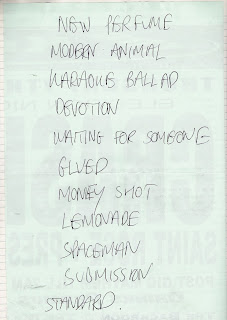 NEW PERFUME
MODERN ANIMAL
KARAOKE BALLAD
DEVOTION
WAITING FOR SOMEONE
GLUED
MONEY SHOT
LEMONADE
SPACEMAN
SUBMISSION
STANDARD.